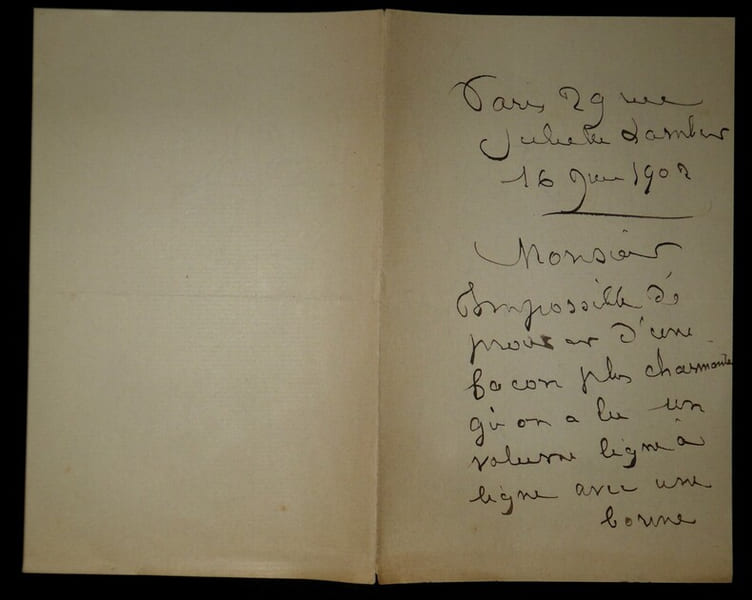 Paris 29 rue
Juliette Lamber
16 Juin 1902
Monsieur
Impossible de
prouver d'une
façon plus charmante
qu'on a lu un
volume ligne à
ligne avec une
bonne